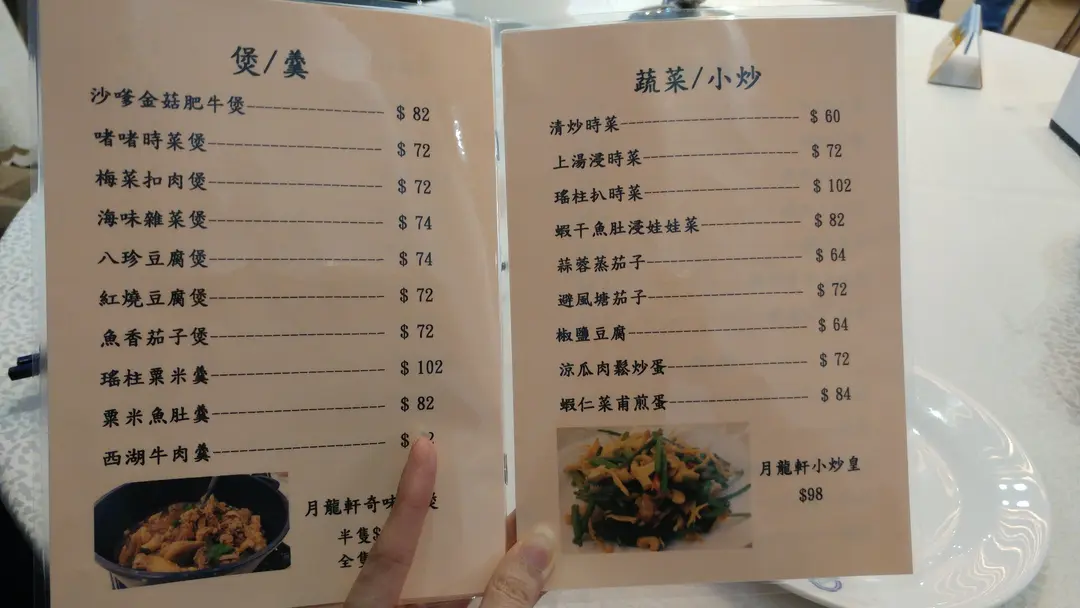 煲/羹
沙嗲金菇肥牛煲 $ 82
啫啫時菜煲 $ 72
梅菜扣肉煲 $ 72
海味雜菜煲 $ 74
八珍豆腐煲 $ 74
紅燒豆腐煲 $ 72
魚香茄子煲 $ 72
瑤柱粟米羹 $ 102
粟米魚肚羹 $ 82
西湖牛肉羹 $
月龍軒奇味
半隻$
全隻
蔬菜/小炒
清炒時菜 $ 60
上湯浸時菜 $ 72
瑤柱扒時菜 $ 102
蝦干魚肚浸娃娃菜 $ 82
蒜蓉蒸茄子 $ 64
避風塘茄子 $ 72
椒鹽豆腐 $ 64
涼瓜肉鬆炒蛋 $ 72
蝦仁菜甫煎蛋 $ 84
月龍軒小炒皇
$98